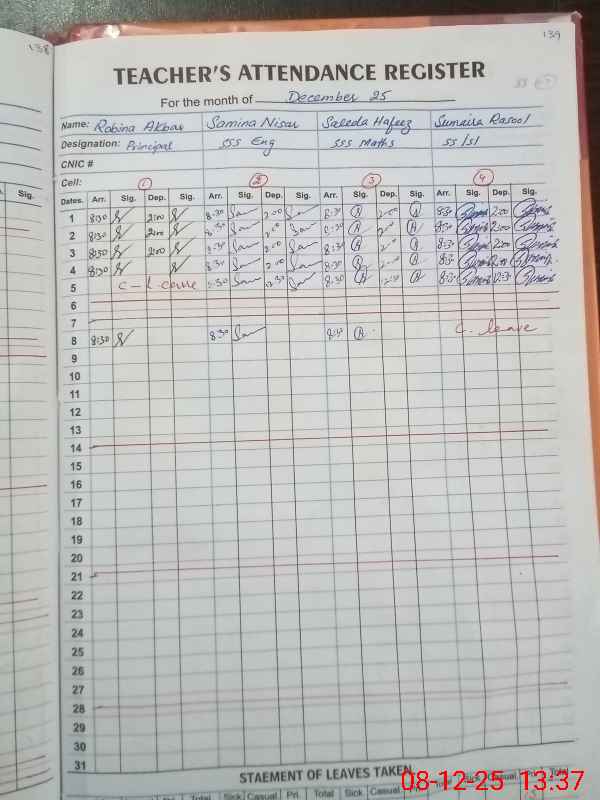 138
139
TEACHER'S ATTENDANCE REGISTER
For the month of December 25
Name: Robina Akbar Samina Nisar Saeeda Hafeez Sumaira Rasool
Designation: Principal SSS Eng SSS Maths SS Isl
CNIC #
Cell: 1 2 3 4
Dates. Arr. Sig. Dep. Sig. Arr. Sig. Dep. Sig. Arr. Sig. Dep. Sig. Arr. Sig. Dep. Sig.
1 8:30 2:00 8:30 2:00 8:30 2:00 8:30 2:00
2 8:30 2:00 8:30 2:00 8:30 2:00 8:30 2:00
3 8:30 2:00 8:30 2:00 8:30 2:00 8:30 2:00
4 8:30 8:30 2:00 8:30 2:00 8:30 2:00
5 C-Leave 8:30 12:30 8:30 12:30 8:30 12:30
6
7
8 8:30 8:30 8:30 C. leave
9
10
11
12
13
14
15
16
17
18
19
20
21
22
23
24
25
26
27
28
29
30
31
STAEMENT OF LEAVES TAKEN
Total Sick Casual Pri. Total Sick Casual Pri. Total Sick Casual Pri. Total
08-12-25 13:37